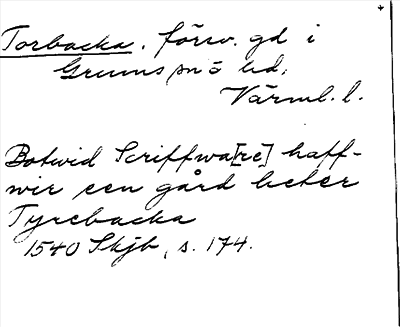 Torbacka. försv. gd i
Grums sn o hd,
Värml. l.
Botwid Scriffwa[re] haff-
wir een gård heter
Tyrebacka
1540 Skjb, s. 174.